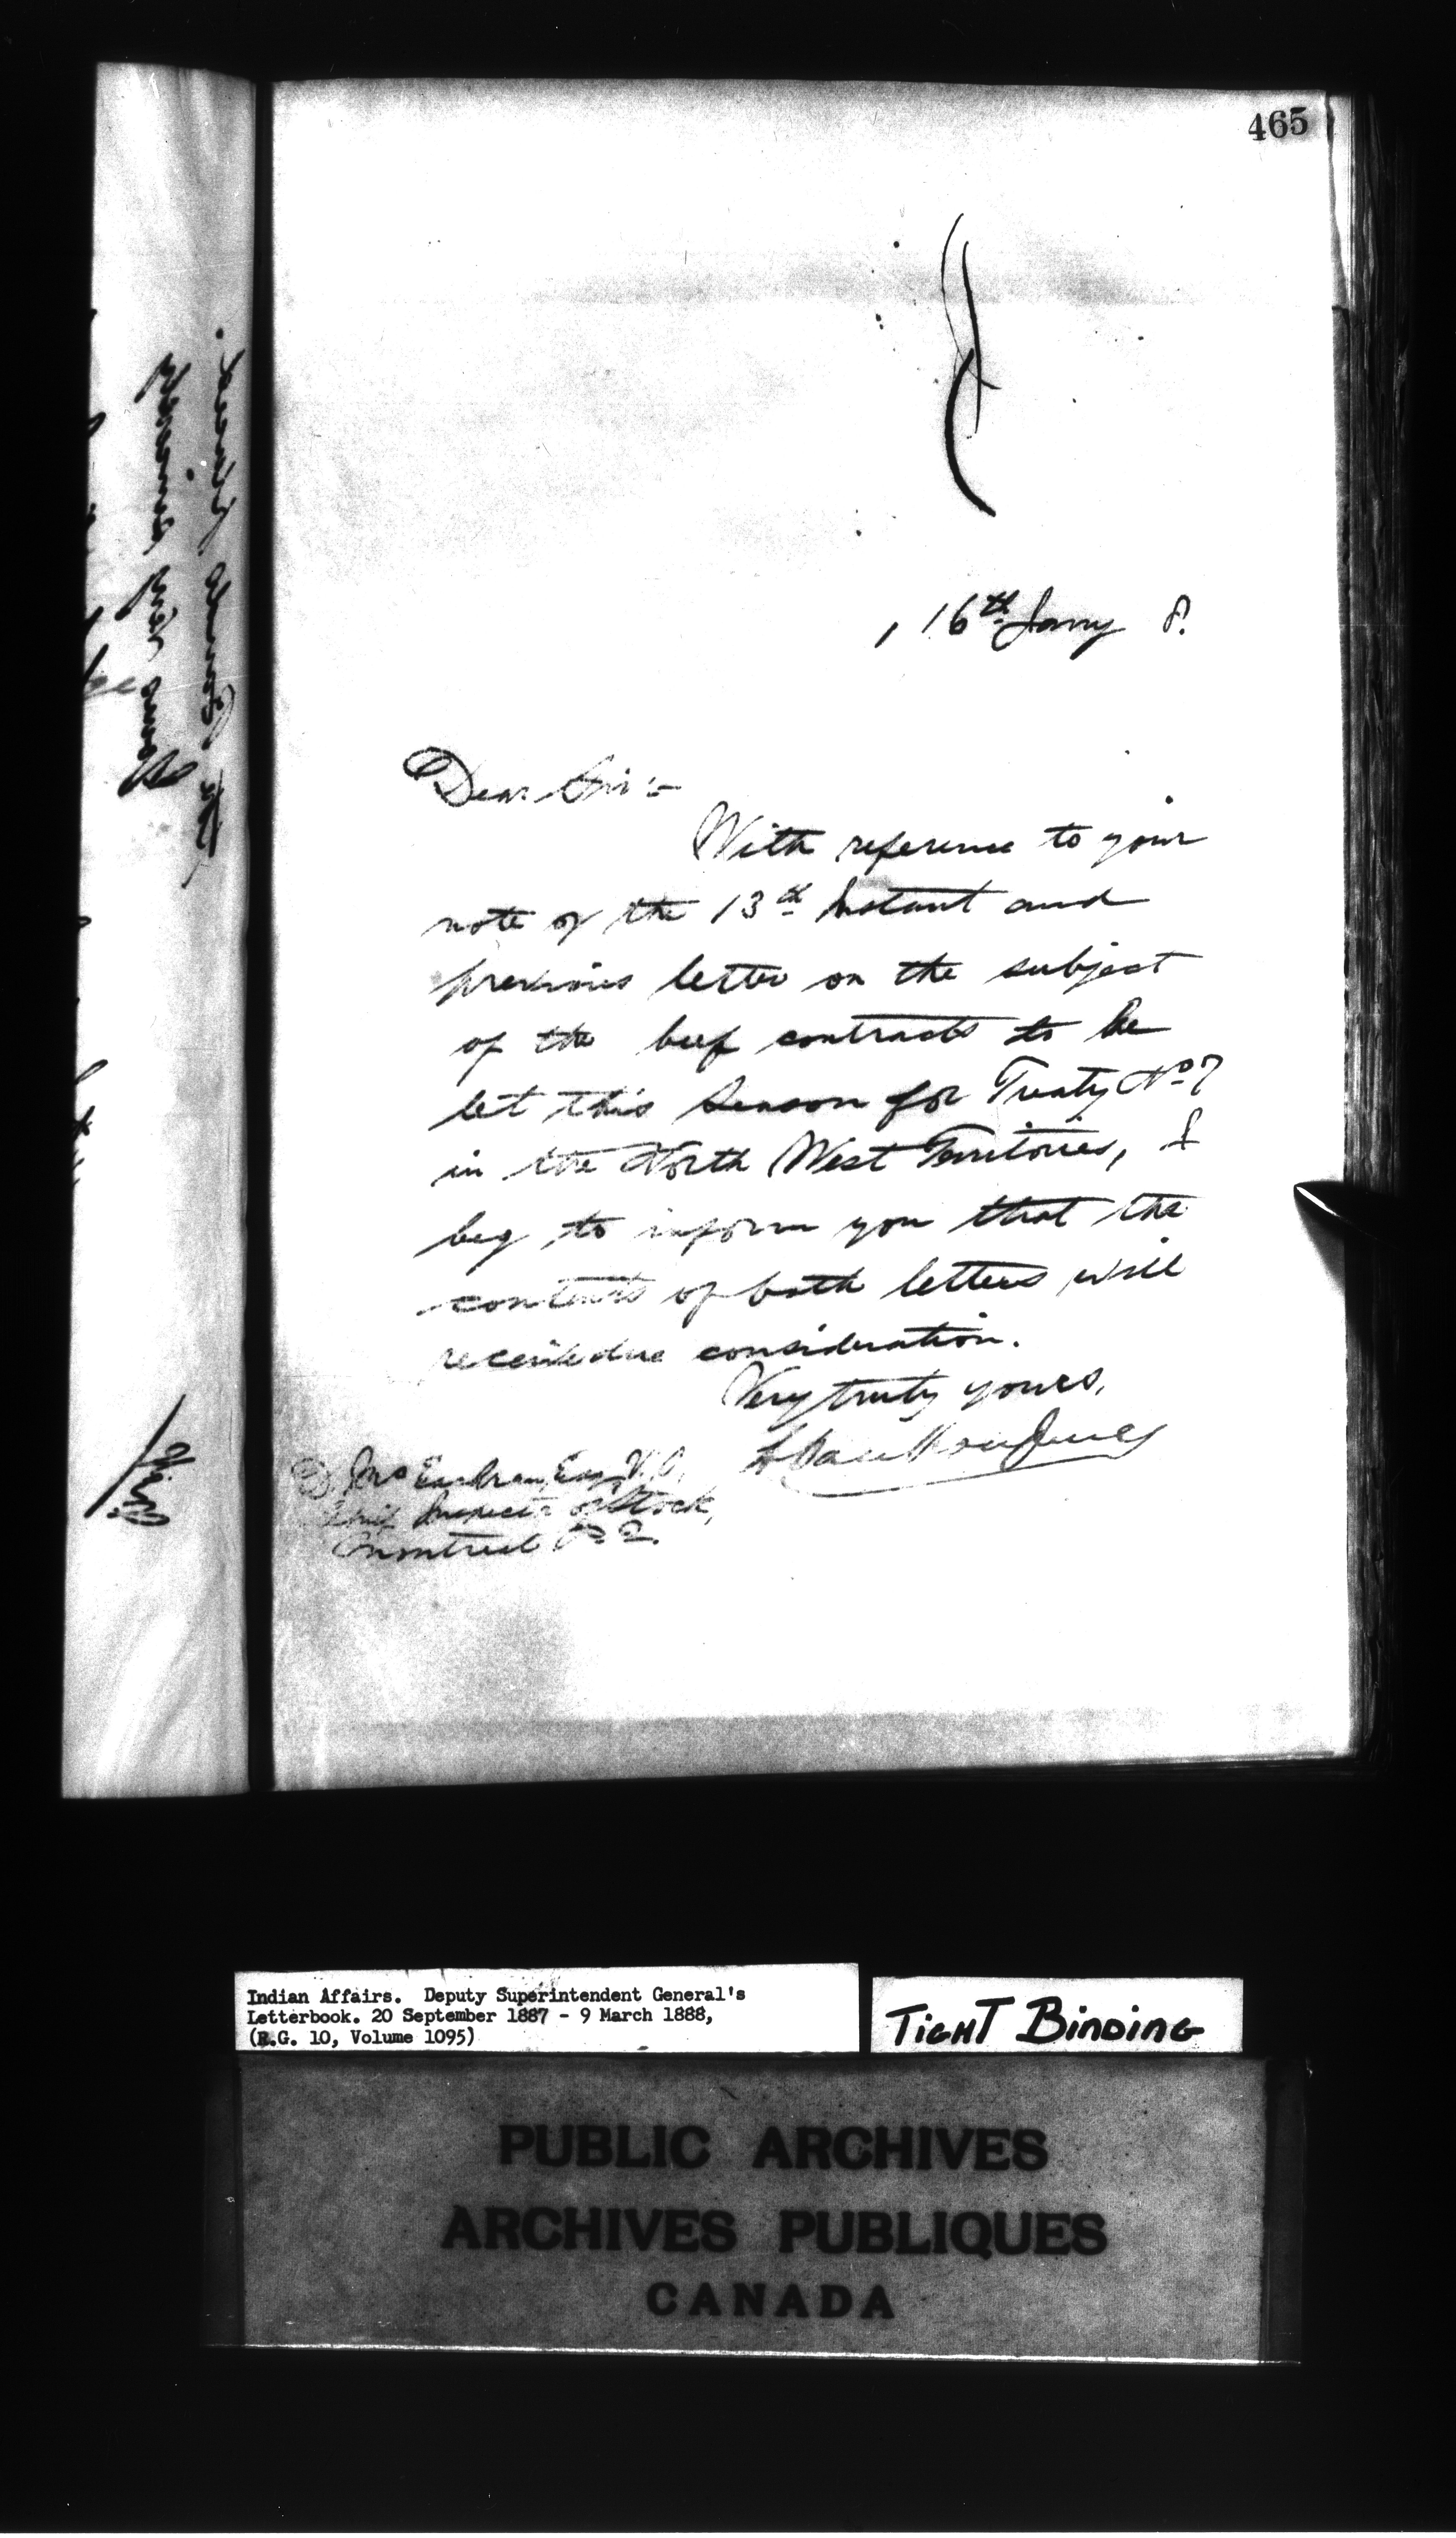 465
, 16th Jany 8.
Dear Sir:-
With reference to your
note of the 13d Instant and
previous letter on the subject
of the beef contracts to be
let this Season for Treaty No 7
in the North West Territories, I
beg to inform you that the
contents of both letters will
receive due consideration.
Very truly yours,
L VanKoughnet
McEachran, Esq, V.S,
Chief Inspector of Stock,
Montreal P.Q.
Indian Affairs. Deputy Superintendent General's
Letterbook. 20 September 1887 - 9 March 1888,
(R.G. 10, Volume 1095)
TIGHT BINDING
PUBLIC ARCHIVES
ARCHIVES PUBLIQUES
CANADA